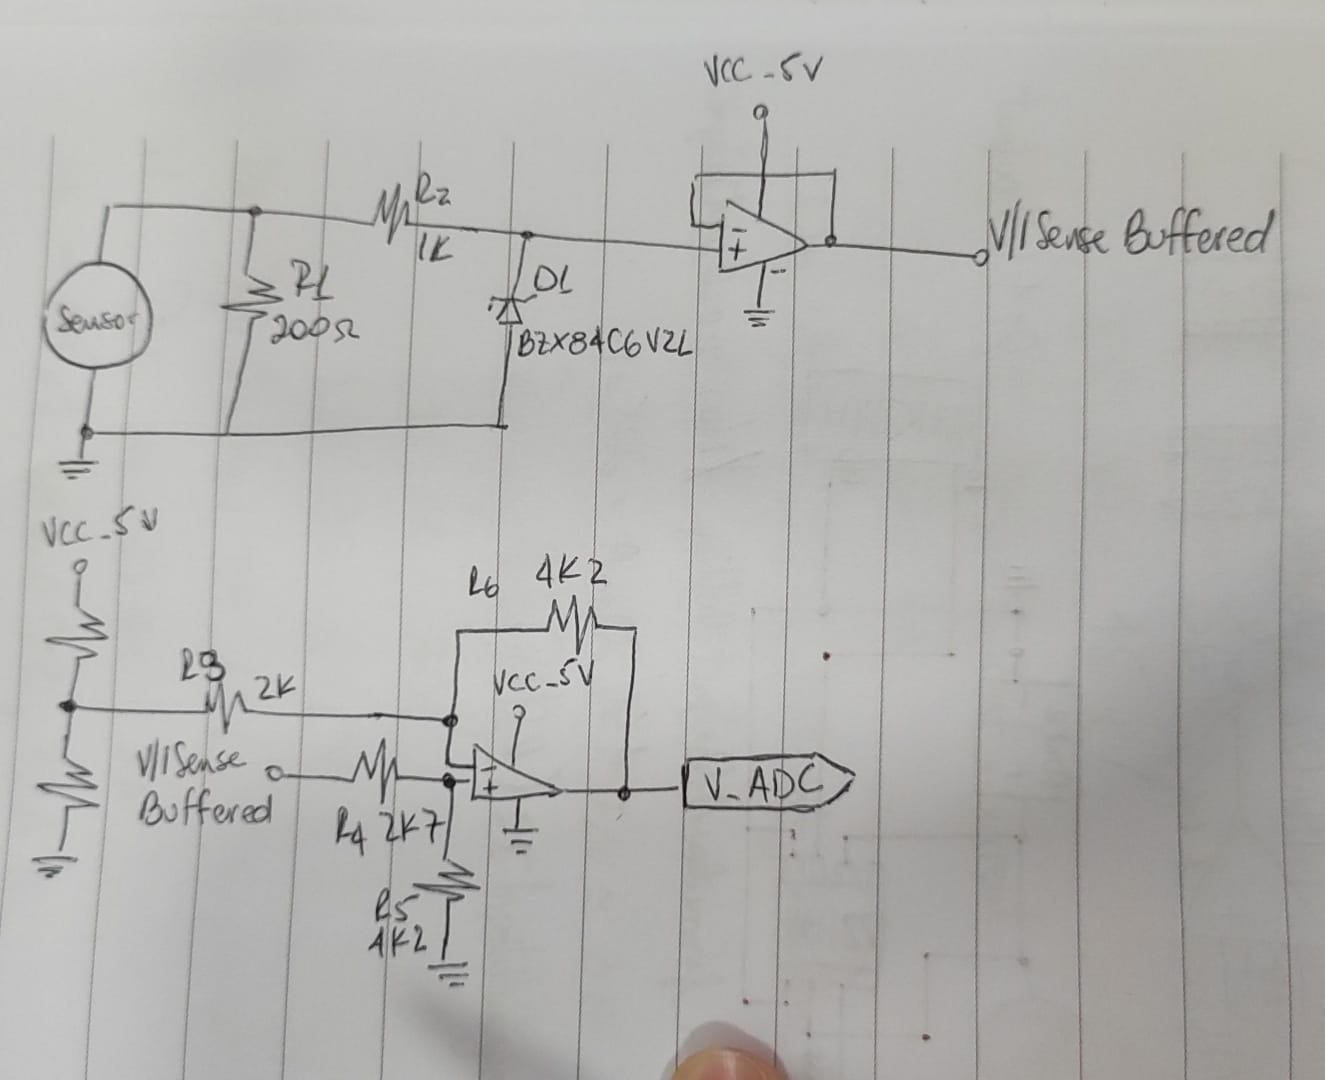 VCC_5V
R2
1K
Sensor
R1
200Ω
D1
BZX84C6V2L
-
+
V/I Sense Buffered
VCC_5V
R6 4K2
R3 2K
VCC_5V
V/I Sense
Buffered
-
+
V_ADC
R4 2K7
R5
4K2